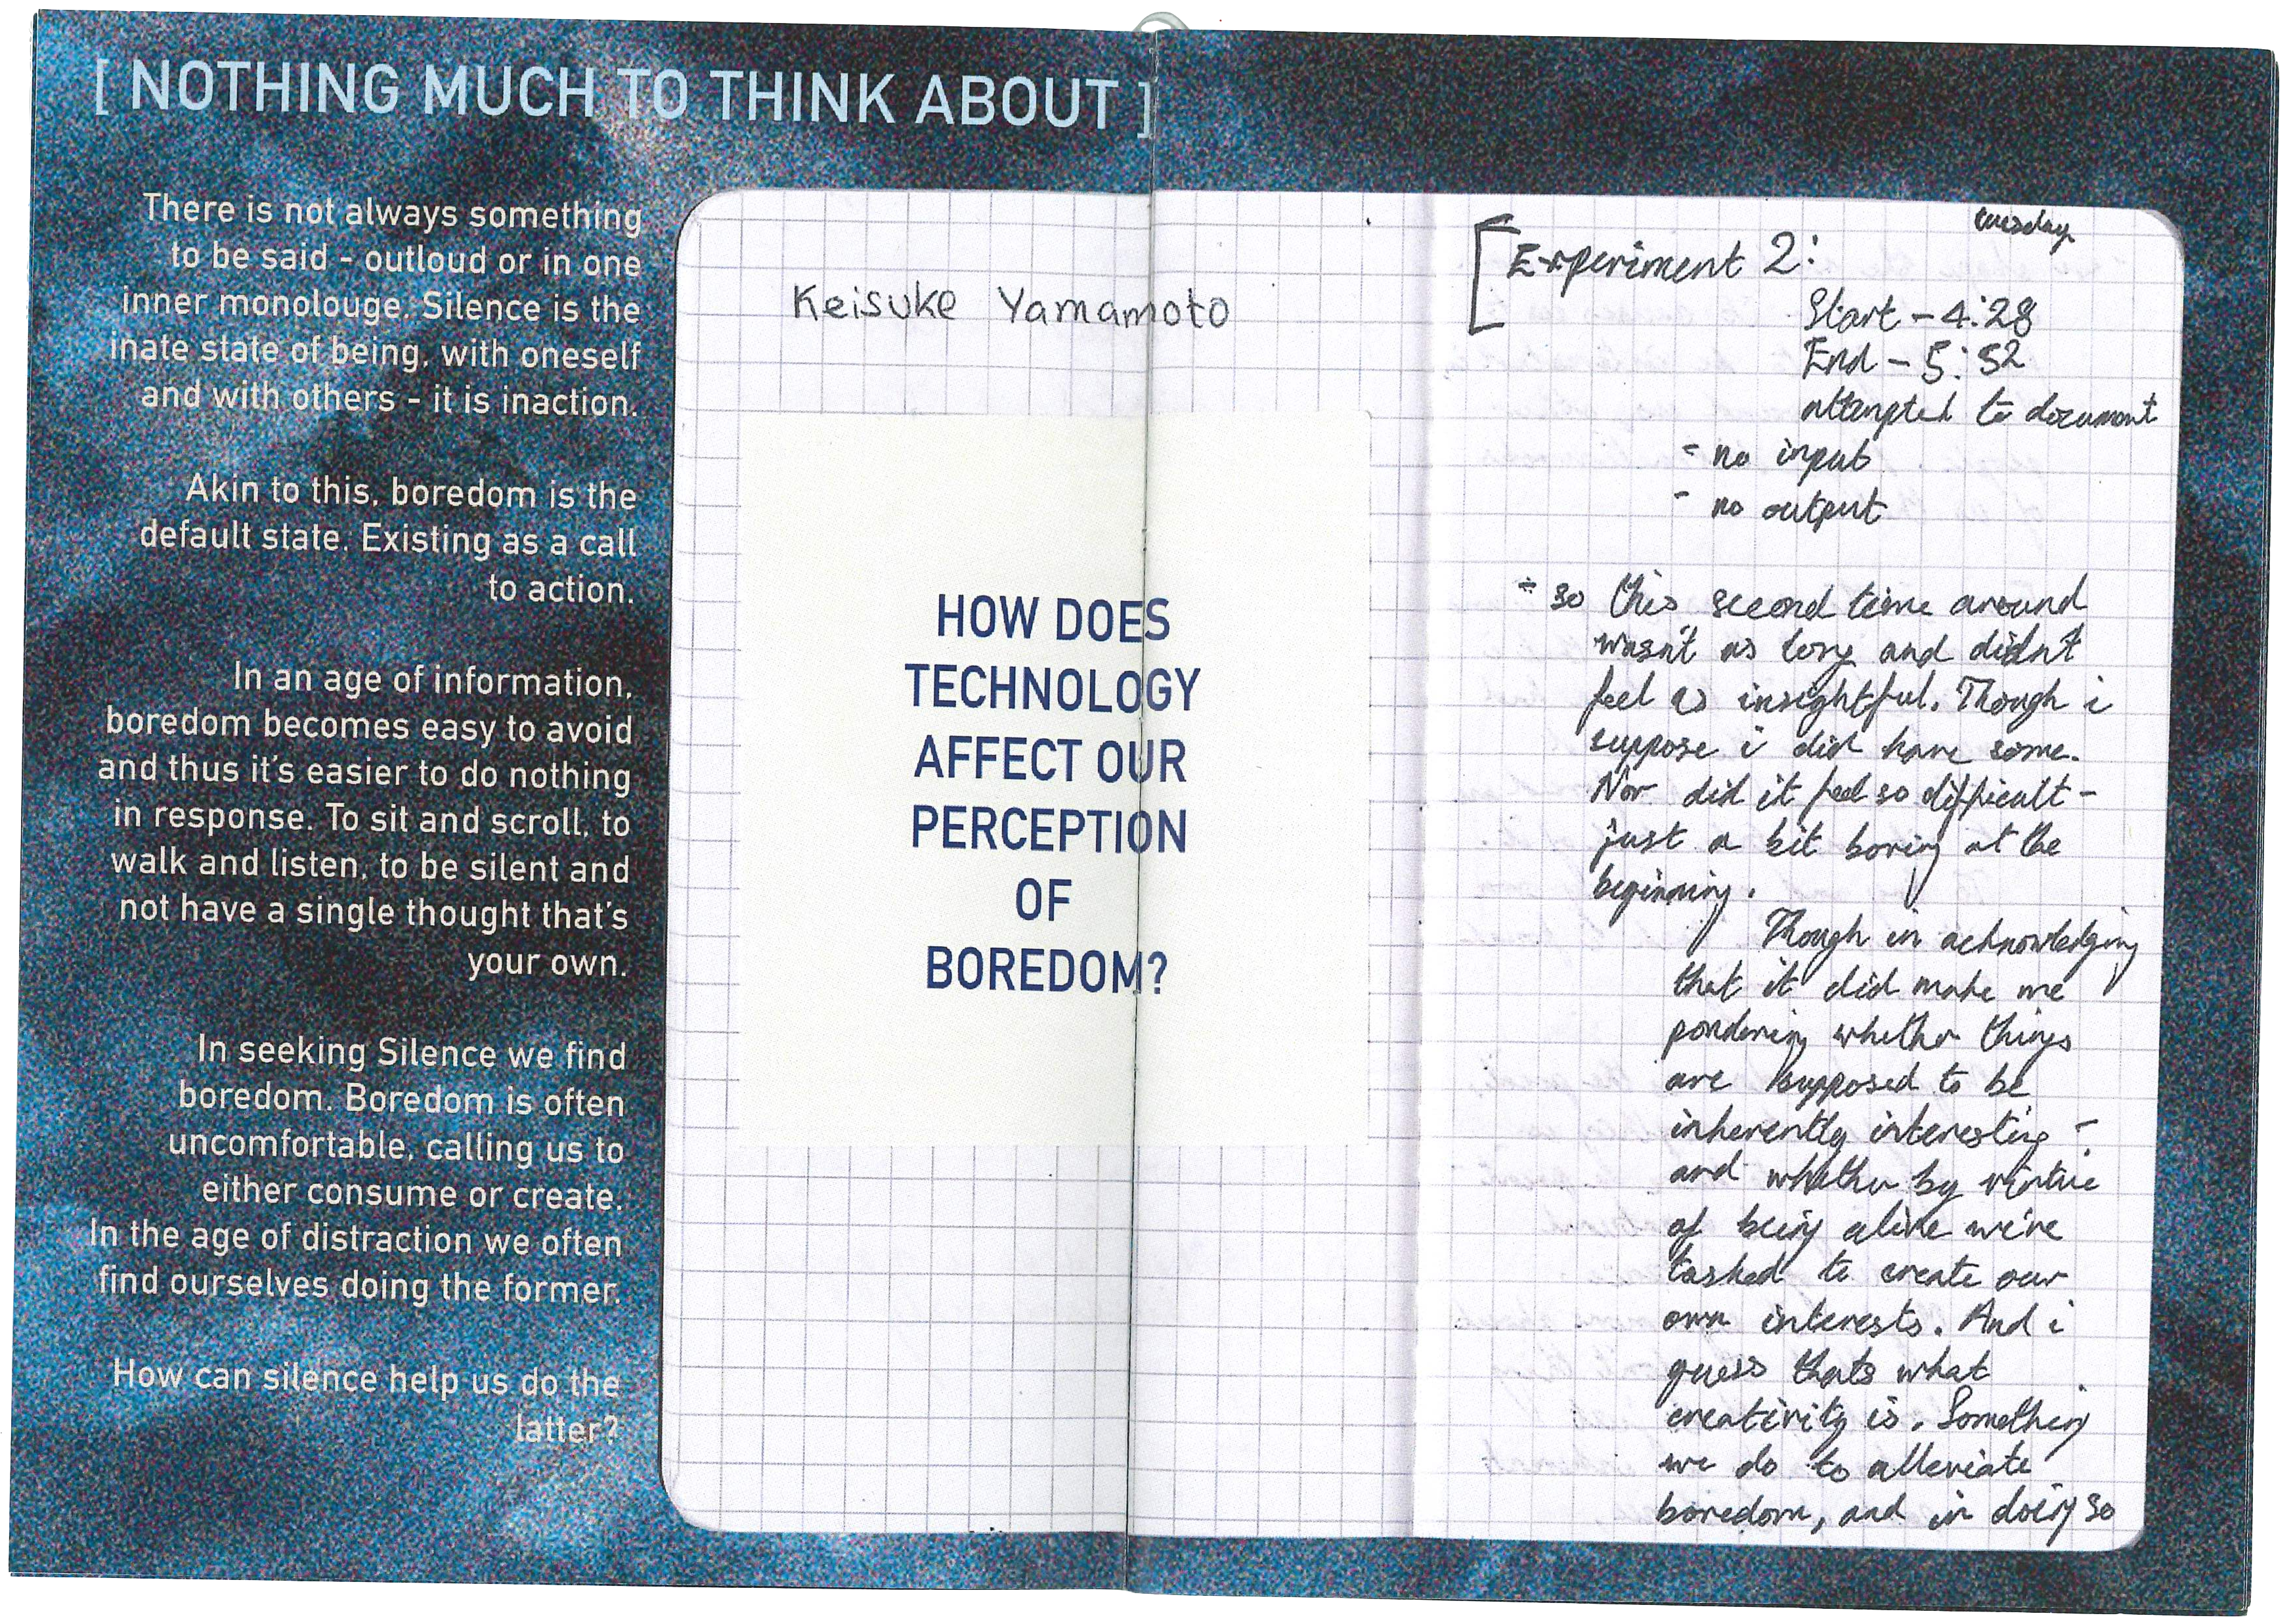 [ NOTHING MUCH TO THINK ABOUT ]
There is not always something
to be said - outloud or in one
inner monolouge. Silence is the
inate state of being, with oneself
and with others - it is inaction.
Akin to this, boredom is the
default state. Existing as a call
to action.
In an age of information,
boredom becomes easy to avoid
and thus it's easier to do nothing
in response. To sit and scroll, to
walk and listen, to be silent and
not have a single thought that's
your own.
In seeking Silence we find
boredom. Boredom is often
uncomfortable, calling us to
either consume or create.
In the age of distraction we often
find ourselves doing the former.
How can silence help us do the
latter?
Keisuke Yamamoto
HOW DOES
TECHNOLOGY
AFFECT OUR
PERCEPTION
OF
BOREDOM?
tuesday
[Experiment 2:
Start - 4:28
End - 5:52
attempted to document
- no input
- no output
- so this second time around
wasn't as long and didn't
feel as insightful. Though i
suppose i did have some.
Nor did it feel so difficult -
just a bit boring at the
beginning.
Though in acknowledging
that it did make me
pondering whether things
are supposed to be
inherently interesting -
and whether by virtue
of being alive we're
tasked to create our
own interests. And i
guess thats what
creativity is. Something
we do to alleviate
boredom, and in doing so